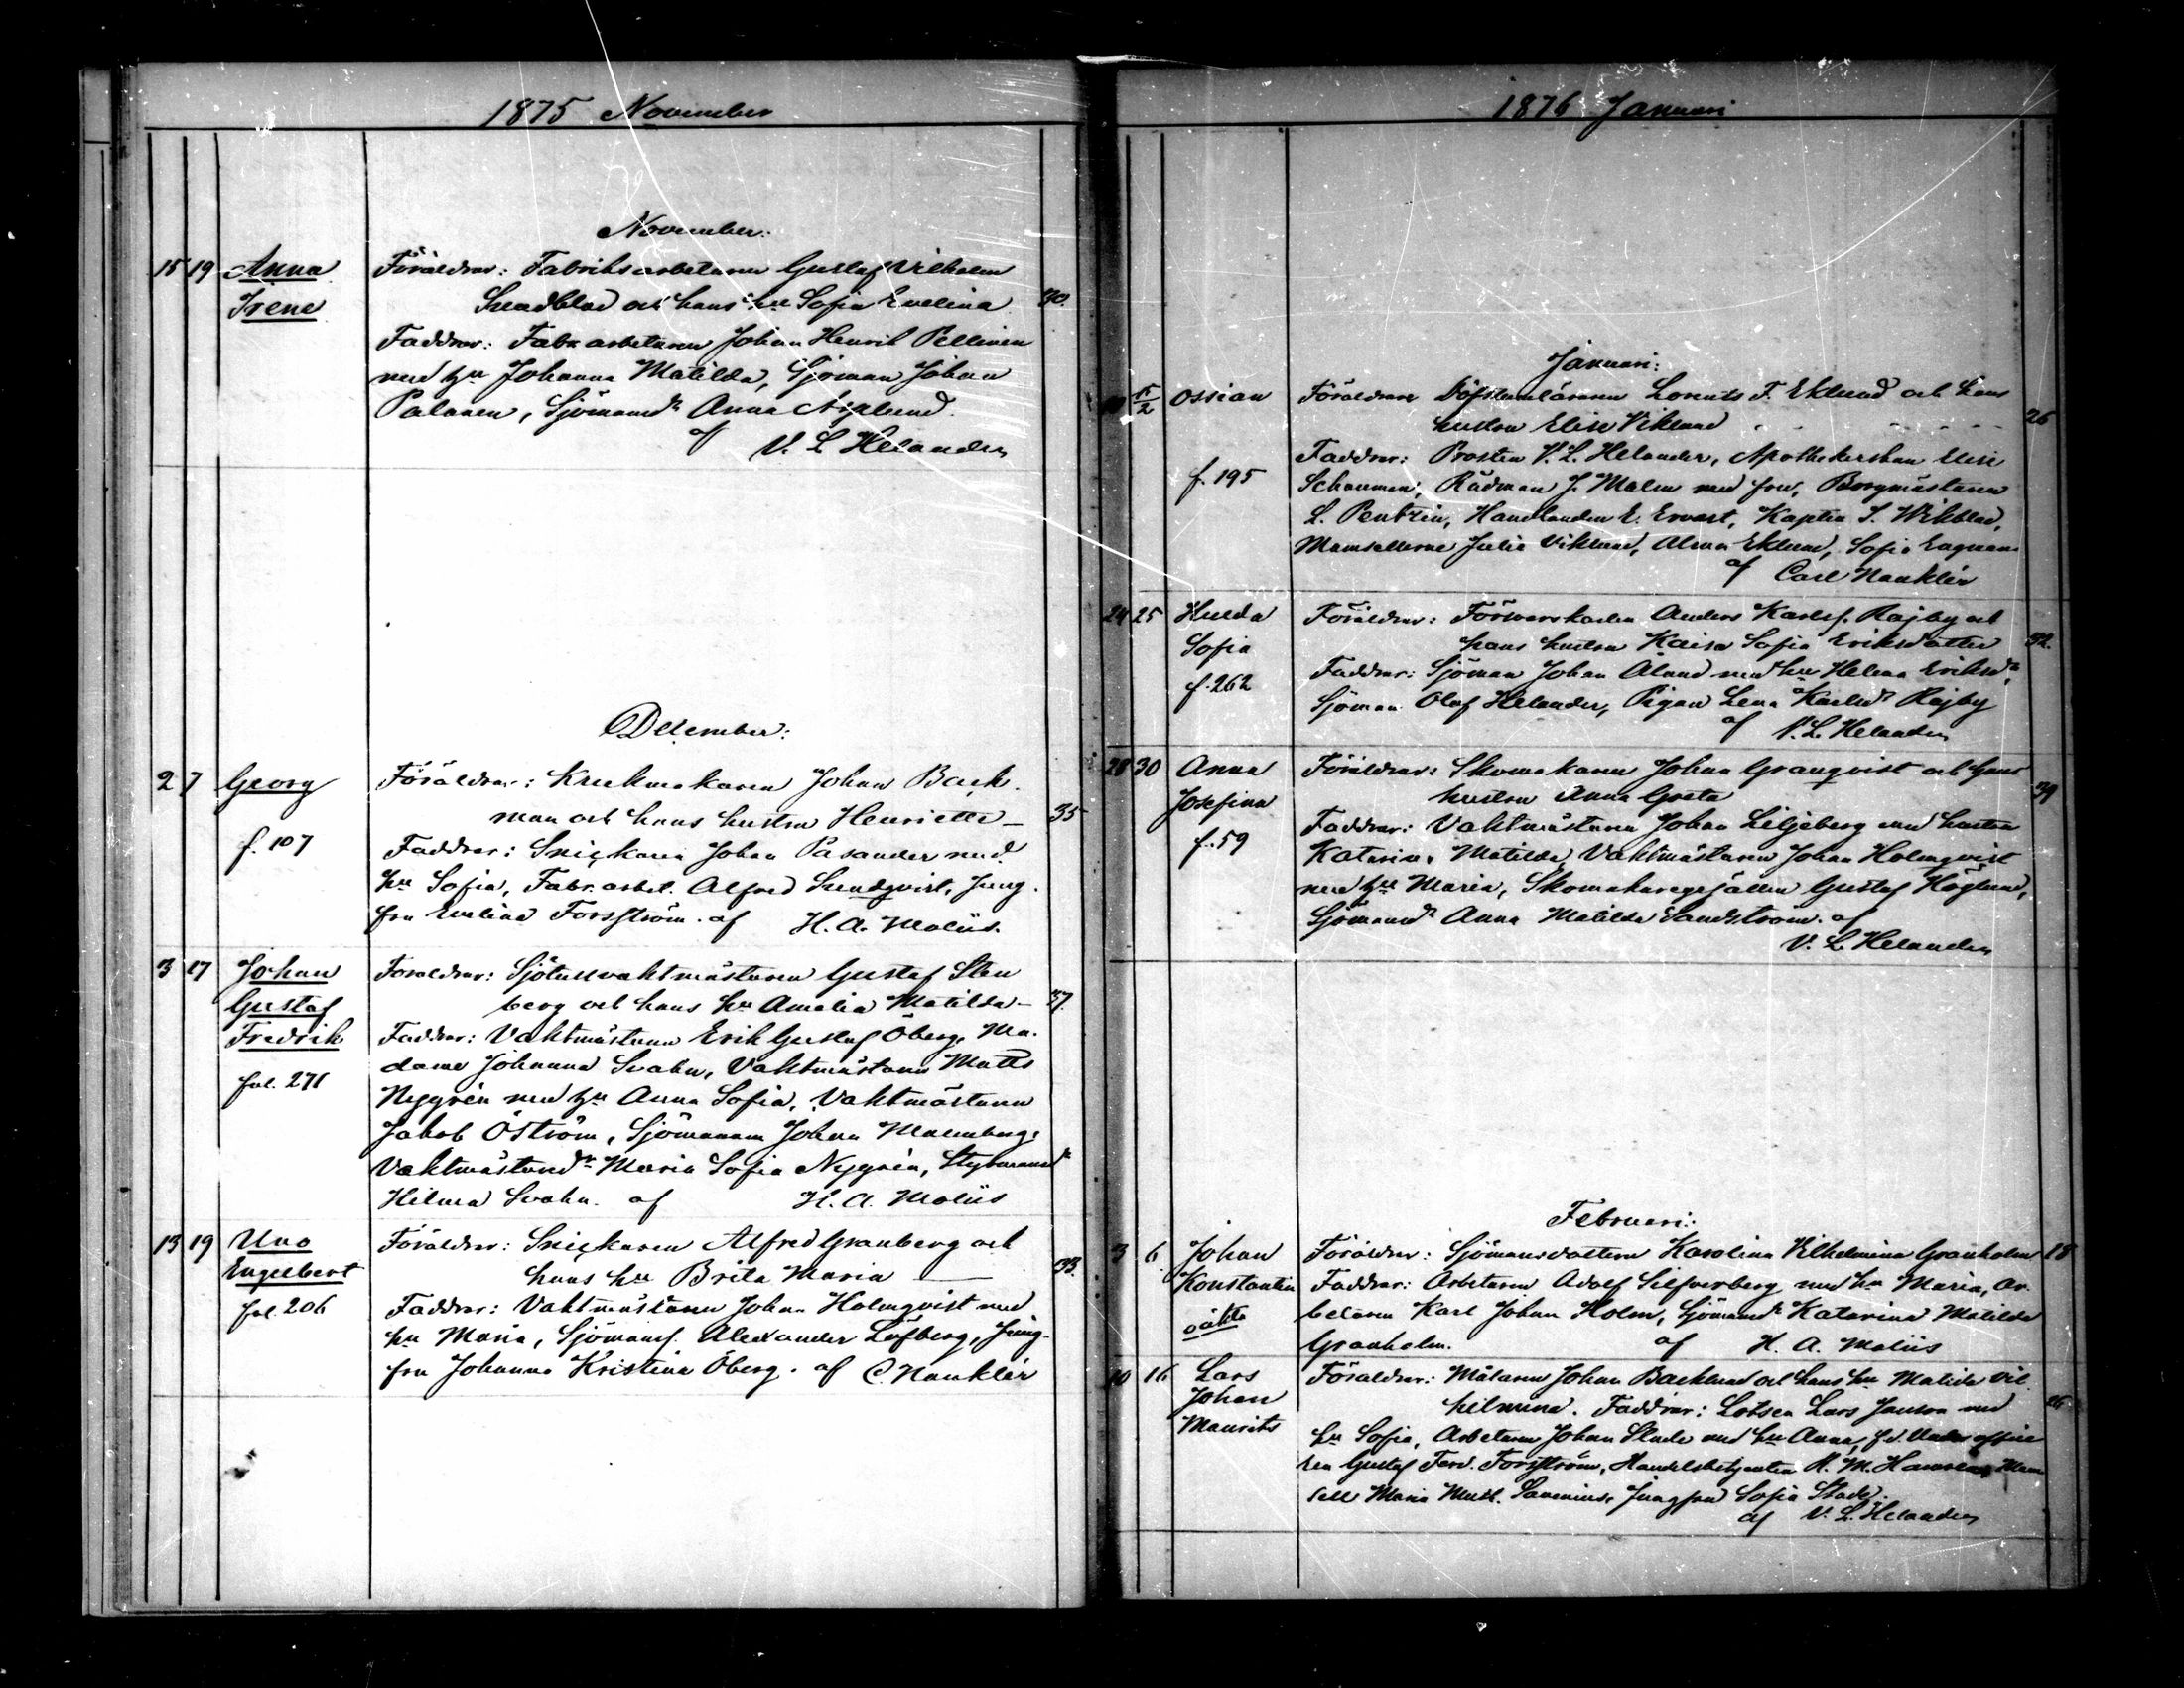 1875 November
November:
15 19 Anna Föräldrar: Fabriksarbetaren Gustaf Vilhelm
Irene Sundblad och hans hu Sofia Evelina 30.
Faddrar: Fabr arbetaren Johan Henrik Pellinen
med hu Johanna Matilda, Sjöman Johan
Palanen, Sjömansdr Anna Asplund.
af V. L Helander
December:
2 7 Georg Föräldrar: Krukmakaren Johan Back-
man och hans hustru Henriette — 35
f. 107 Faddrar: Snickaren Johan Påsander med
hu Sofia, Fabr. arbet. Alfred Sundqvist, Jung-
fru Evelina Forsström. af H. A. Moliis.
3 17 Johan Föräldrar: Sjötullvaktmästaren Gustaf Sten
Gustaf berg och hans hu Amalia Matilda — 37.
Fredrik Faddrar: Vaktmästaren Erik Gustaf Öberg, Ma-
dame Johanna Svahn, Vaktmästaren Matts
fol. 271
Nygrén med hu Anna Sofia, Vaktmästaren
Jakob Öström, Sjömannen Johan Malmberg,
Vaktmästaredr Maria Sofia Nygrén, Styrmansdr
Hilma Svahn. af H. A. Moliis
13 19 Uno Föräldrar: Snickaren Alfred Granberg och
Engelbert hans hu Brita Maria — 33.
fol. 206 Faddrar: Vaktmästaren Johan Holmqvist med
hu Maria, Sjömans. Alexander Löfberg, Jung-
fru Johanna Kristina Öberg. af C. Nanklér
1876 Januari
Januari:
5/2 Ossian Föräldrar Döfstumläraren Lorents F. Eklund och hans
hustru Elise Viklund 26
Faddrar: Prosten V. L. Helander, Apothekerskan Elise
f. 195 Schauman, Rådman J. Malm med fru, Borgmästaren
L. Pentzin, Handlanden E. Ervast, Kapten S. Wikblad,
Mamsellerne Julia Viklund, Alma Eklund, Sofia Engman
af Carl Nanklér
24 25 Hulda Föräldrar: Förswarskarlen Anders Karlss. Rajby och
Sofia hans hustru Kaisa Sofia Eriksdotter 32.
f. 262 Faddrar: Sjöman Johan Ålund med hu Helena Eriksdr,
Sjöman Olof Helander, Pigan Lena Karlsdr Rajby
af V. L. Helander
28 30 Anna Föräldrar: Skomakaren Johan Granqvist och hans
Josefina hustru Anna Greta 39
f. 59 Faddrar: Vaktmästaren Johan Liljeberg med hustru
Katarina Matilda, Vaktmästaren Johan Holmqvist
med hu Maria, Skomakaregesällen Gustaf Höglund,
Sjömansdr Anna Matilda Sandström. af
V. L. Helander
Februari:
3 6 Johan Föräldrar: Sjömansdottern Karolina Vilhelmina Granholm 18
Konstantin Faddrar: Arbetaren Adolf Silfverberg med hu Maria, Ar-
oäkta betaren Karl Johan Holm, Sjömansdr Katarina Matilda
Granholm. af H. A. Moliis
10 16 Lars Föräldrar: Målaren Johan Backlund och hans hu Matilda Vil-
Johan helmina. Faddrar: Lotsen Lars Janson med 26
Maurits hu Sofia, Arbetaren Johan Stade med hu Anna, f.d. Underoffice
ren Gustaf Ferd. Forsström, Handelsbetjenten K. M. Hanson, Mam
sell Maria Math. Savenius, Jungfru Sofia Stade.
af V. L. Helander